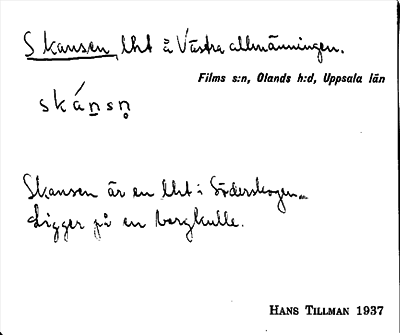 Skansen, lht å Västra allmänningen.
Films s:n, Olands h:d, Uppsala län
skánsn̥
Skansen är en lht i Söderskogen.
Ligger på en bergkulle.
HANS TILLMAN 1937